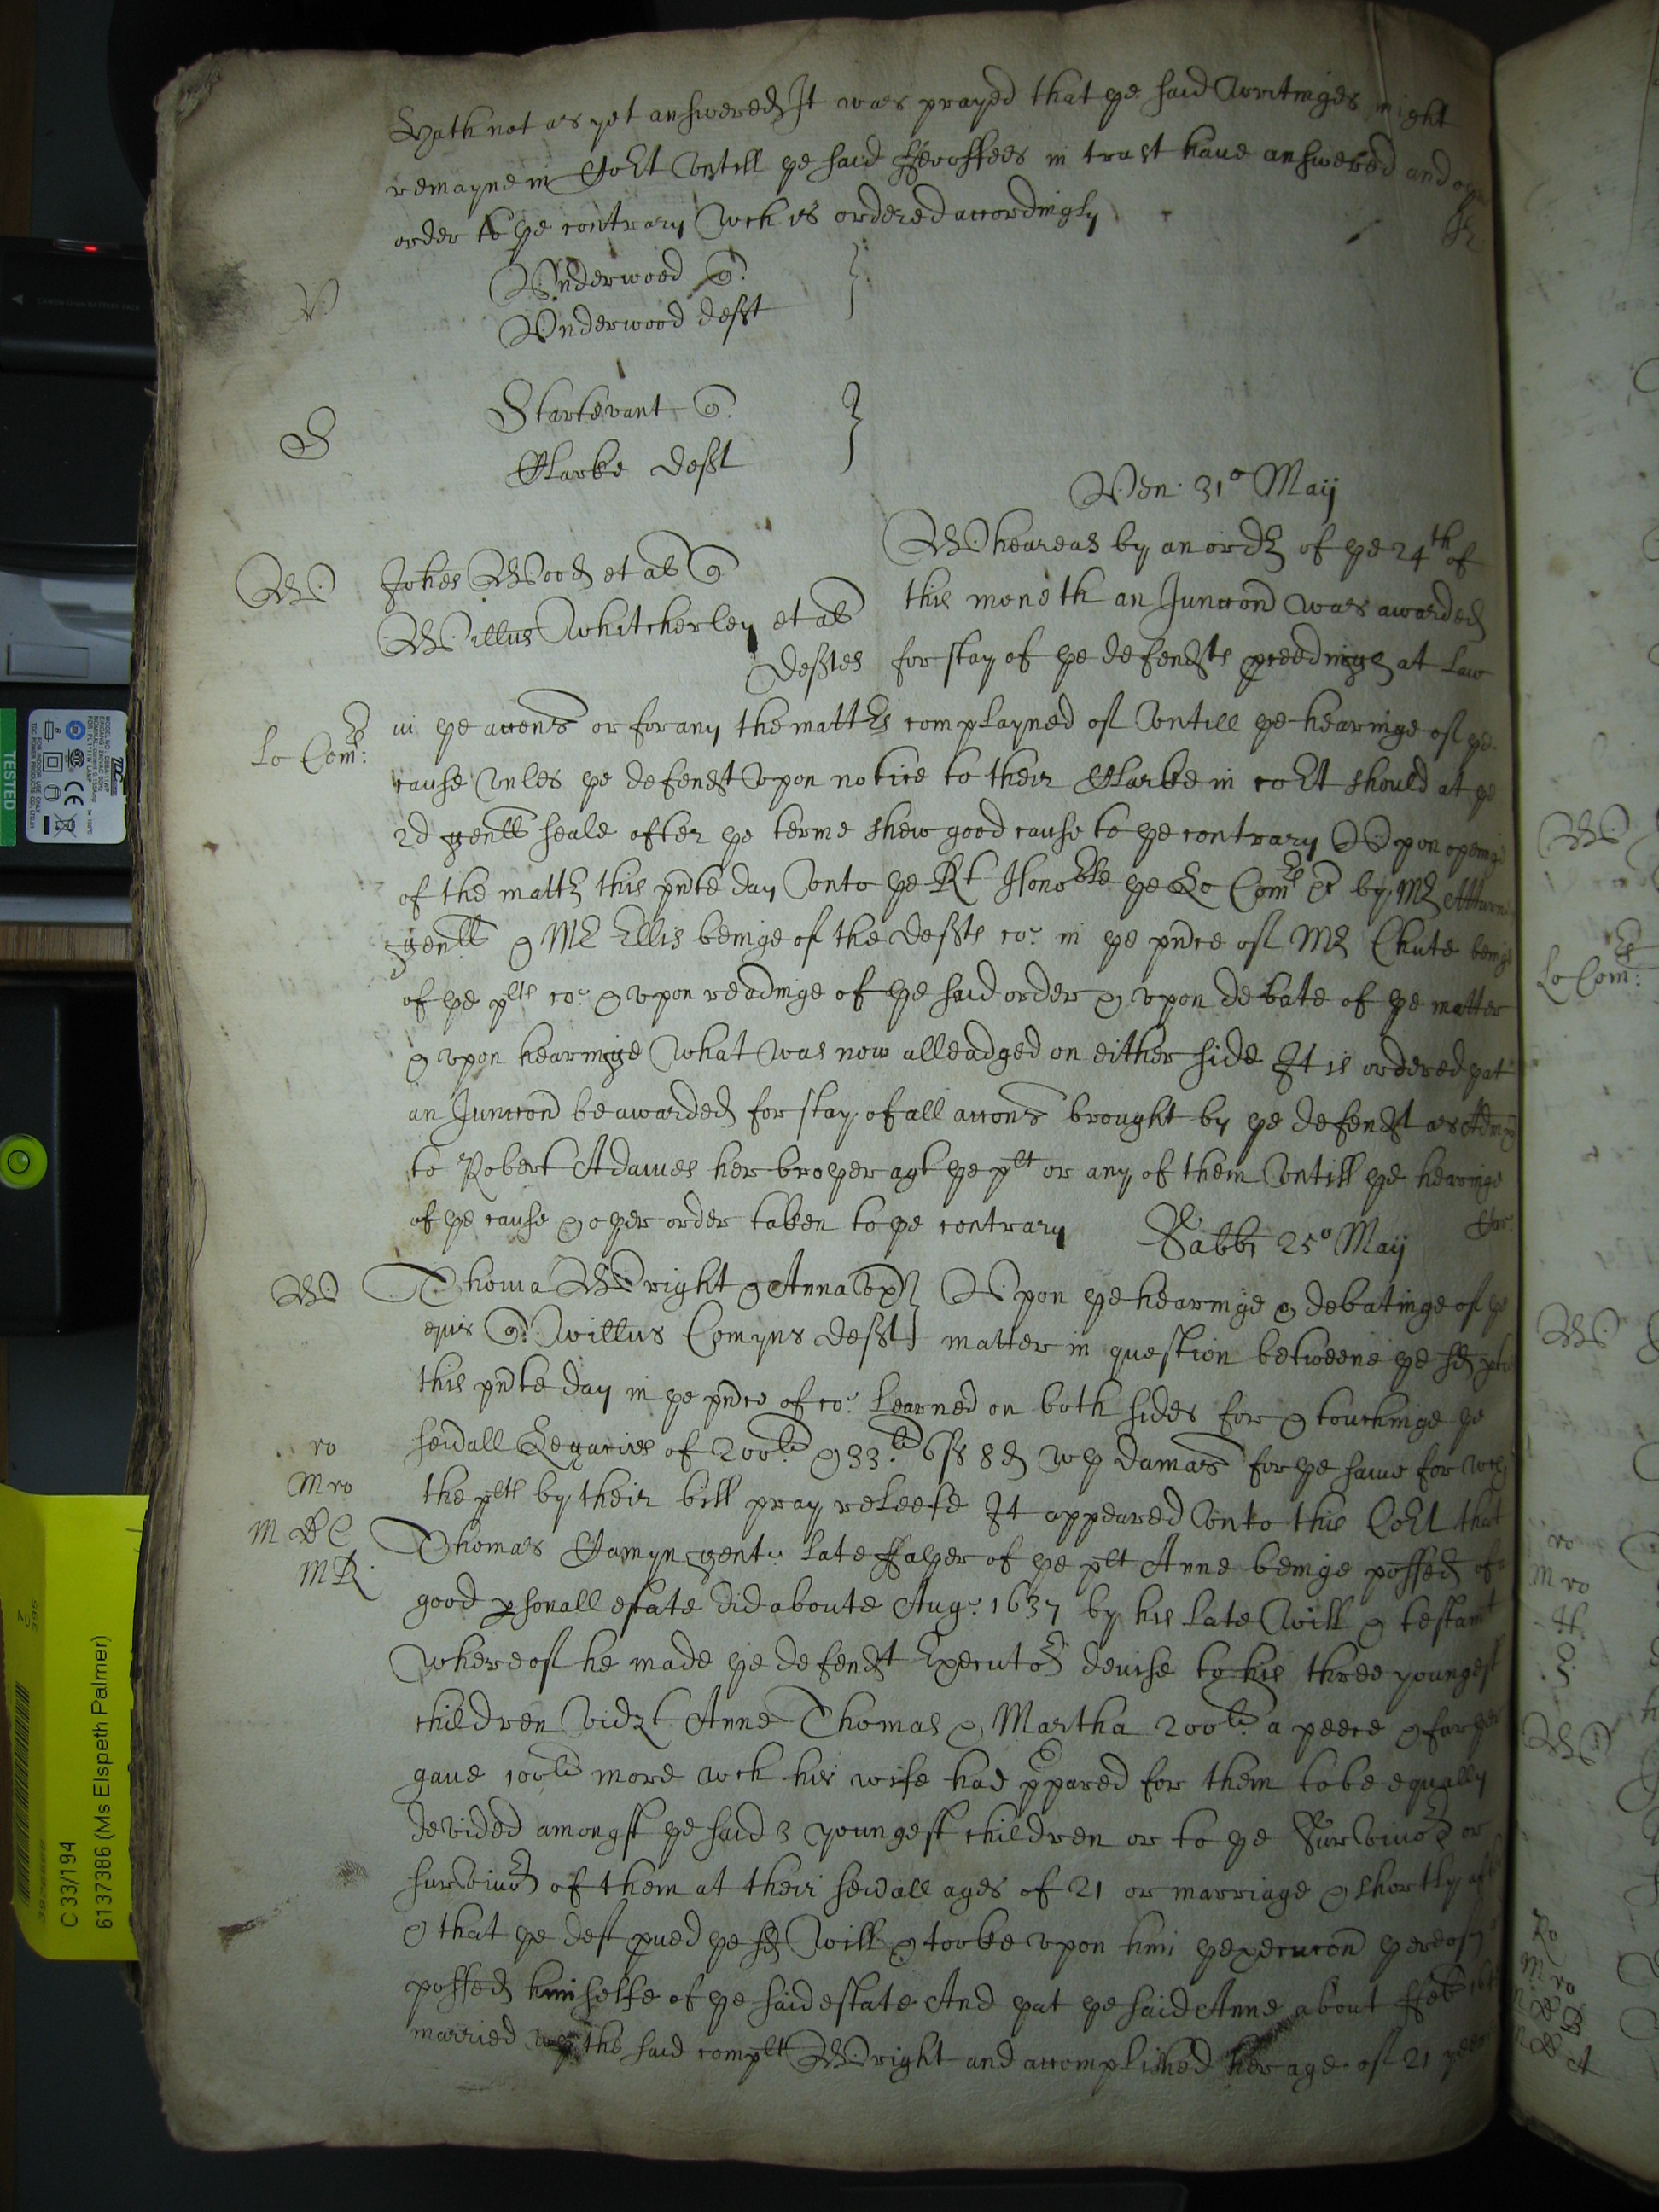 hath not as yet answered It was prayed that ye said writinges might
remayne in Cort Untill ye said ffeoffees in trust have answered and oyer
order to ye contrary wch is ordered accordingly
V
Underwood q
Underwood deft
S
Startevant q
Clarke deft
Ven: 31o Maij
W
Johes Wood et al q
Willus Whitcherley et al
deftes
Wheareas by an ordr of ye 24th of
this moneth an Junccon was awarded
for stay of ye defendts pceedinges at law
Lo Comrs:
in ye accons or for any the mattrs complayned of Untill ye hearinge of ye
cause Unles ye defendt Upon notice to their Clarke in cort should at ye
2d genll seale after ye terme shew good cause to ye contrary Upon openinge
of the mattr this pnte day Unto ye Rt Honoble ye Lo Comrs by Mr Atturney
genll & Mr Ellis beinge of the defts co: in ye pnce of Mr Chute beinge
of ye plts co: & upon readinge of ye said order & upon debate of ye matter
& upon hearinge what was now alleadged on either side It is ordered yat
an Junccon be awarded for stay of all accons brought by ye defendt as Adm
to Robert Adames her broyer agt ye plt or any of them Untill ye hearinge
of ye cause & oyer order taken to ye contrary
Sabbi 25o Maij
W
Thoma Wright & Anna Ux
ejus q: Willus Comyns deft
Upon ye hearinge & debatinge of ye
matter in question betweene ye sd pties
this pnte day in ye pnce of co: Learned on both sides for & touchinge ye
ro
M ro
M R C
M R
sevall Legacies of 200li & 33li 6s 8d wth damas for ye same for wch
the plts by their bill pray releefe It appeared Unto this Cort that
Thomas Comyn gent: late ffayer of ye plt Anne beinge possed of a
good psonall estate did aboute Aug: 1637 by his late Will & testamt
whereof he made ye defendt Executor devise to his three youngest
children Vidzt Anne Thomas & Martha 200li a peece & faryer
gave 100li more wch his wife had ppared for them to be equally
devided amongst ye said 3 youngest children or to ye Survivor or
survivors of them at their sevall ages of 21 or marriage & shortly after
& that ye deft pved ye sd Will & tooke upon him ye execucon yereof &
possed himselfe of ye said estate And yat ye said Anne about ffeb
married wth the said complt Wright and accomplished her age of 21 yeares
W
Lo Comrs:
W
ro
M ro
W
Ro
M ro
TESTED
C 33/194
6137386 (Ms Elspeth Palmer)